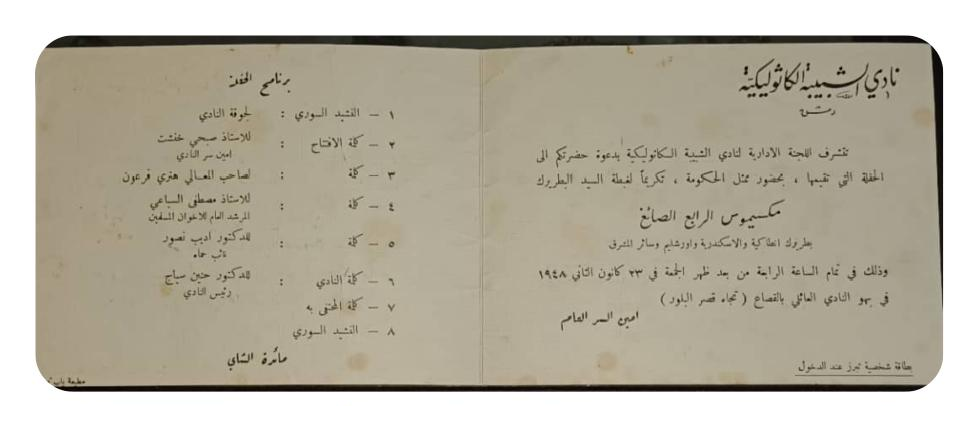 نادي الشبيبة الكاثوليكية
دمشق
تتشرف اللجنة الادارية لنادي الشبيبة الكاثوليكية بدعوة حضرتكم الى
الحفلة التي تقيمها ، بحضور ممثل الحكومة ، تكريماً لغبطة السيد البطريرك
مكسيموس الرابع الصائغ
بطريرك انطاكية والاسكندرية واورشليم وسائر المشرق
وذلك في تمام الساعة الرابعة من بعد ظهر الجمعة في ٢٣ كانون الثاني ١٩٤٨
في بهو النادي العائلي بالقصاع ( تجاه قصر البلور )
امين السر العام
بطاقة شخصية تبرز عند الدخول
برنامج الحفلة
١ — النشيد السوري : لجوقة النادي
٢ — كلمة الافتتاح : للاستاذ صبحي خفشت
امين سر النادي
٣ — كلمة : لصاحب المعالي هنري فرعون
٤ — كلمة : للاستاذ مصطفى السباعي
المرشد العام للاخوان المسلمين
٥ — كلمة : للدكتور اديب نصور
نائب حماه
٦ — كلمة النادي : للدكتور حنين سياج
رئيس النادي
٧ — كلمة المحتفى به
٨ — النشيد السوري
مائدة الشاي
مطبعة باب